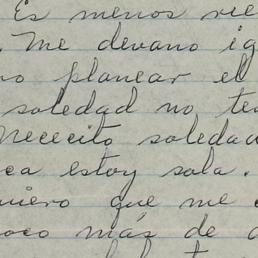 Es menos
. Me devano ig
no planear el
soledad no te
Nececito soledad
ca estoy sola.
uiero que me
oco más de